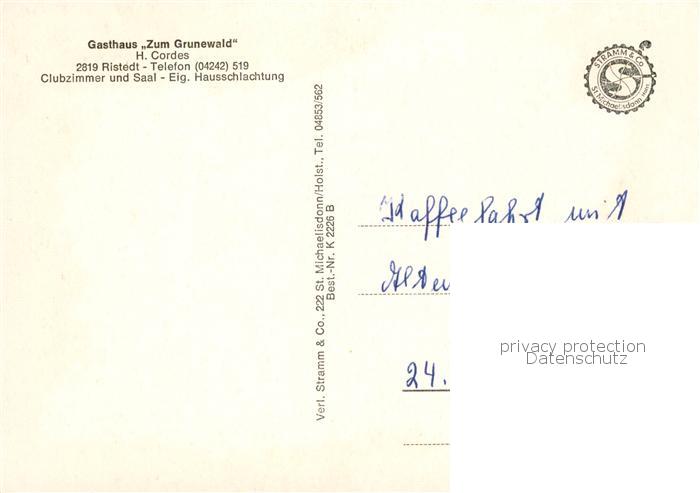 Gasthaus „Zum Grunewald“
H. Cordes
2819 Ristedt - Telefon (04242) 519
Clubzimmer und Saal - Eig. Hausschlachtung
Verl. Stramm & Co., 222 St. Michaelisdonn/Holst., Tel. 04853/562
Best.-Nr. K 2226 B
STRAMM & Co
St Michaelisdonn
Kaffeefahrt mit
24.
privacy protection
Datenschutz